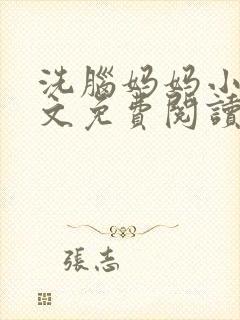 洗腦媽媽小
文免費閱讀
張志